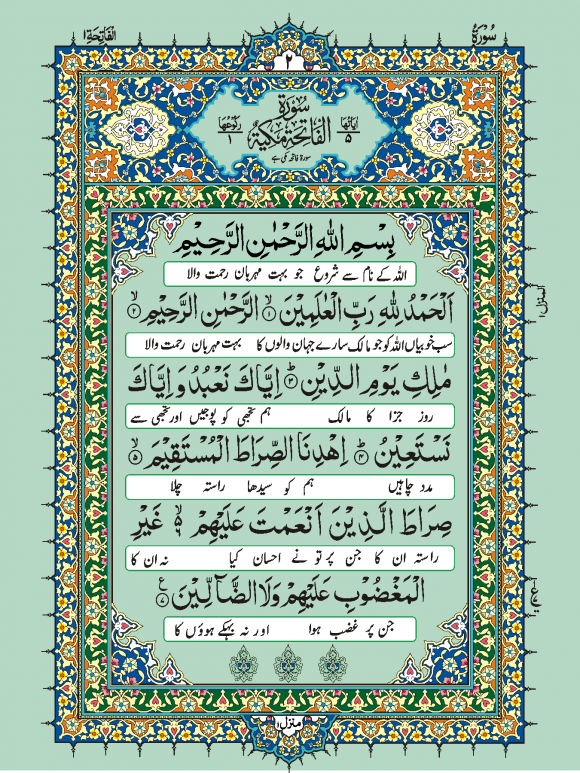 سُوْرَةُ
الْفَاتِحَةِ ١
٢
اٰيَاتُهَا ٥
سُوْرَةُ
الْفَاتِحَةِ مَكِّيَّةٌ
رُكُوْعُهَا ١
سورۃ فاتحہ مکی ہے
بِسْمِ اللهِ الرَّحْمٰنِ الرَّحِيْمِ
اللہ کے نام سے شروع جو بہت مہربان رحمت والا
اَلْحَمْدُ لِلّٰهِ رَبِّ الْعٰلَمِيْنَ ۙ﴿۱﴾ الرَّحْمٰنِ الرَّحِيْمِ ۙ﴿۲﴾
سب خوبیاں اللہ کو جو مالک سارے جہان والوں کا بہت مہربان رحمت والا
مٰلِكِ يَوْمِ الدِّيْنِ ؕ﴿۳﴾ اِيَّاكَ نَعْبُدُ وَ اِيَّاكَ
روز جزا کا مالک ہم تجھی کو پوجیں اور تجھی سے
نَسْتَعِيْنُ ؕ﴿۴﴾ اِهْدِنَا الصِّرَاطَ الْمُسْتَقِيْمَ ۙ﴿۵﴾
مدد چاہیں ہم کو سیدھا راستہ چلا
صِرَاطَ الَّذِيْنَ اَنْعَمْتَ عَلَيْهِمْ ۙ﴿۶﴾ غَيْرِ
راستہ ان کا جن پر تو نے احسان کیا نہ ان کا
الْمَغْضُوْبِ عَلَيْهِمْ وَلَا الضَّآلِّيْنَ ﴿۷﴾ ع
جن پر غضب ہوا اور نہ بہکے ہوؤں کا
المنزل ۱
منزل ۱